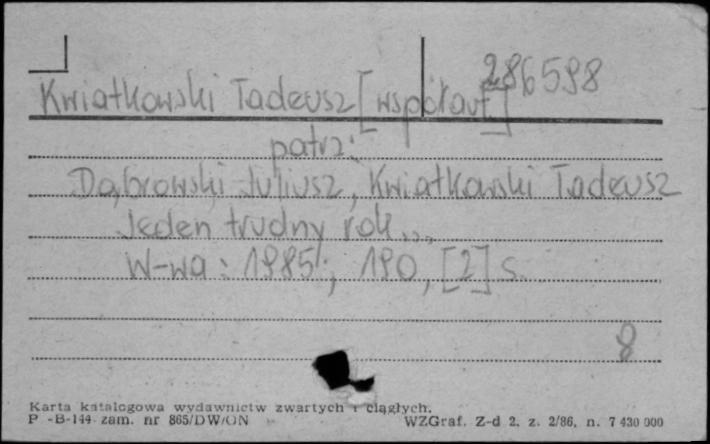 286598
Kwiatkowski Tadeusz [współaut.]
patrz:
Dąbrowski Juliusz, Kwiatkowski Tadeusz
Jeden trudny rok...
W-wa : 1985, 190, [2] s.
8
Karta katalogowa wydawnictw zwartych i ciągłych.
P -B-144 zam. nr 865/DW/ON WZGraf. Z-d 2. z. 2/86, n. 7 430 000